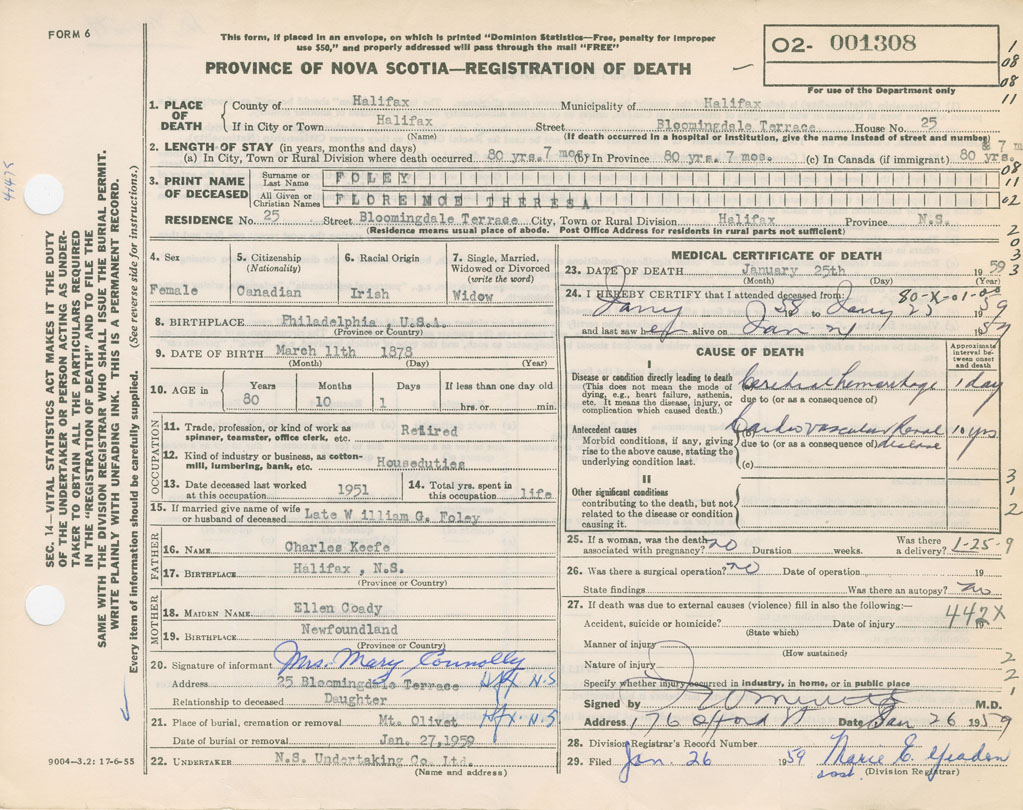 FORM 6
This form, if placed in an envelope, on which is printed "Dominion Statistics—Free, penalty for improper
use $50," and properly addressed will pass through the mail "FREE"
PROVINCE OF NOVA SCOTIA—REGISTRATION OF DEATH
02- 001308
For use of the Department only
1. PLACE OF DEATH
County of Halifax Municipality of Halifax
If in City or Town Halifax Street Bloomingdale Terrace House No. 25
(Name) (If death occurred in a hospital or institution, give the name instead of street and number)
2. LENGTH OF STAY (in years, months and days)
(a) In City, Town or Rural Division where death occurred 80 yrs. 7 mos. (b) In Province 80 yrs. 7 mos. (c) In Canada (if immigrant) 80 yrs. & 7 m
3. PRINT NAME OF DECEASED
Surname or Last Name FOLEY
All Given or Christian Names FLORENCE THERESA
RESIDENCE No. 25 Street Bloomingdale Terrace City, Town or Rural Division Halifax Province N.S.
(Residence means usual place of abode. Post Office Address for residents in rural parts not sufficient)
4. Sex
Female
5. Citizenship
(Nationality)
Canadian
6. Racial Origin
Irish
7. Single, Married,
Widowed or Divorced
(write the word)
Widow
8. BIRTHPLACE Philadelphia, U.S.A.
(Province or Country)
9. DATE OF BIRTH March 11th 1878
(Month) (Day) (Year)
10. AGE in
Years Months Days If less than one day old
80 10 1 hrs. or min.
OCCUPATION
11. Trade, profession, or kind of work as
spinner, teamster, office clerk, etc. Retired
12. Kind of industry or business, as cotton-
mill, lumbering, bank, etc. Houseduties
13. Date deceased last worked
at this occupation 1951
14. Total yrs. spent in
this occupation life
15. If married give name of wife
or husband of deceased Late William G. Foley
FATHER
16. NAME Charles Keefe
17. BIRTHPLACE Halifax, N.S.
(Province or Country)
MOTHER
18. MAIDEN NAME Ellen Coady
19. BIRTHPLACE Newfoundland
(Province or Country)
20. Signature of informant Mrs. Mary Connolly
Address 25 Bloomingdale Terrace Hfx N.S
Relationship to deceased Daughter
21. Place of burial, cremation or removal Mt. Olivet Hfx. N.S
Date of burial or removal Jan. 27, 1959
22. UNDERTAKER N.S. Undertaking Co. Ltd.
(Name and address)
MEDICAL CERTIFICATE OF DEATH
23. DATE OF DEATH January 25th 1959
(Month) (Day) (Year)
80-X-01-00
24. I HEREBY CERTIFY that I attended deceased from:
58 to 25 1959
and last saw her alive on Jan 19
CAUSE OF DEATH
Approximate
interval be-
tween onset
and death
I
Disease or condition directly leading to death
(This does not mean the mode of
dying, e.g., heart failure, asthenia,
etc. It means the disease, injury, or
complication which caused death.)
Cerebral hemorrhage 1 day
due to (or as a consequence of)
Antecedent causes
Morbid conditions, if any, giving
rise to the above cause, stating the
underlying condition last.
(b) Cardio vascular Renal 10 yrs
due to (or as a consequence of) disease
(c)
II
Other significant conditions
contributing to the death, but not
related to the disease or condition
causing it.
25. If a woman, was the death
associated with pregnancy? no Duration weeks. Was there
a delivery? 1-25-9
26. Was there a surgical operation? no Date of operation 19
State findings Was there an autopsy? no
27. If death was due to external causes (violence) fill in also the following:—
442X
Accident, suicide or homicide? Date of injury 19
(State which)
Manner of injury
(How sustained)
Nature of injury
Specify whether injury occurred in industry, in home, or in public place
Signed by M.D.
Address 176 Date Jan 26 1959
28. Division Registrar's Record Number
29. Filed Jan. 26 1959 Marie E.
(Division Registrar)
SEC. 14—VITAL STATISTICS ACT MAKES IT THE DUTY
OF THE UNDERTAKER OR PERSON ACTING AS UNDER-
TAKER TO OBTAIN ALL THE PARTICULARS REQUIRED
IN THE "REGISTRATION OF DEATH" AND TO FILE THE
SAME WITH THE DIVISION REGISTRAR WHO SHALL ISSUE THE BURIAL PERMIT.
WRITE PLAINLY WITH UNFADING INK. THIS IS A PERMANENT RECORD.
Every item of information should be carefully supplied. (See reverse side for instructions.)
9004—3.2: 17-6-55
1
08
08
11
08
11
02
2
0
3
3
3
1
2
2
2
1